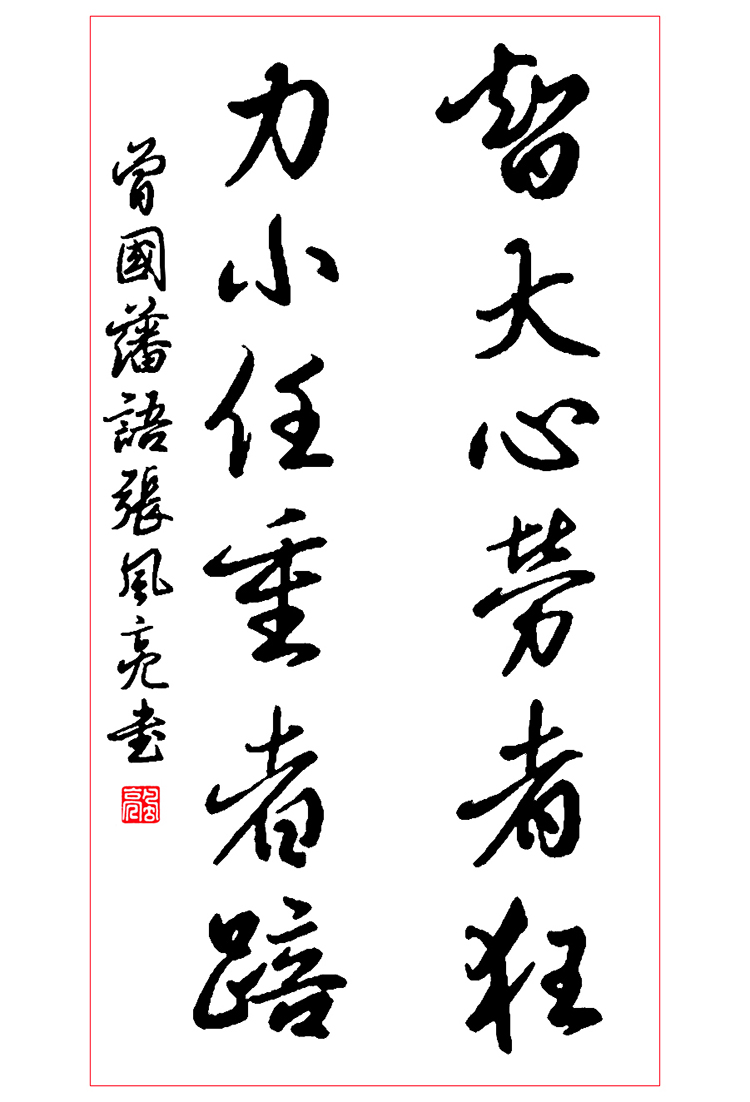 智大心劳者狂
力小任重者踣
曾國藩語張風亮书